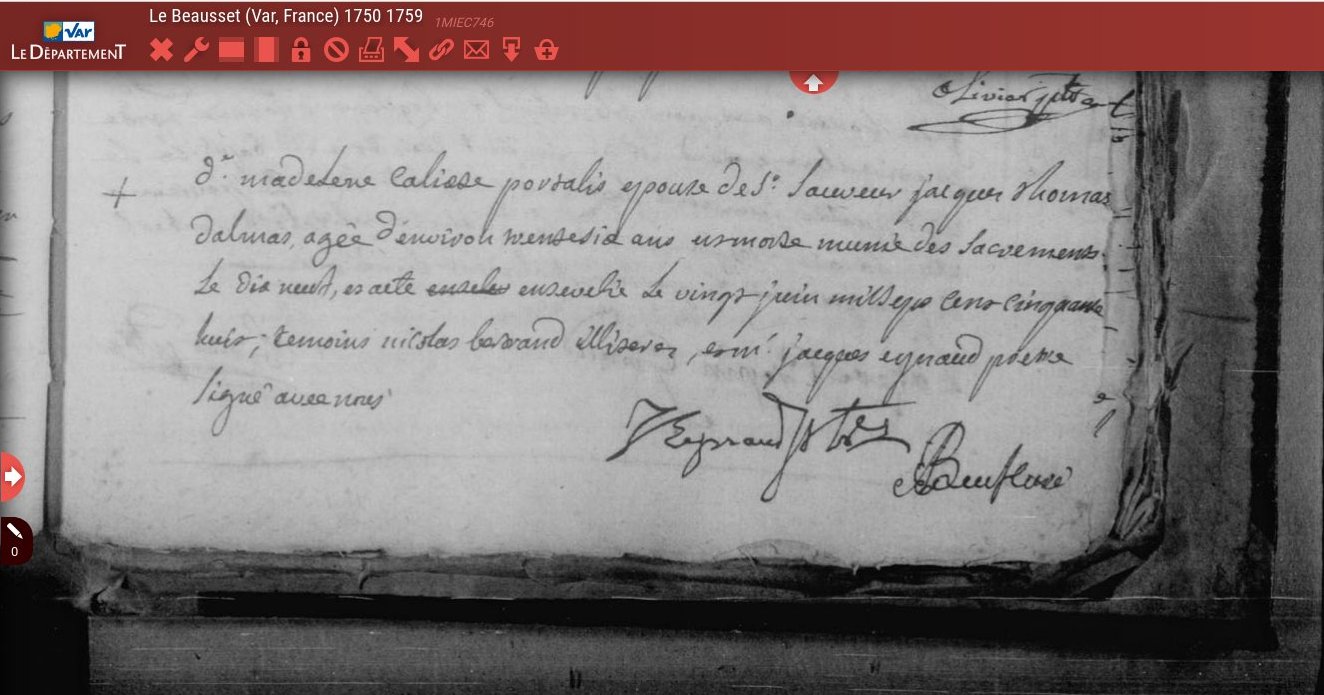 Le Beausset (Var, France) 1750 1759 1MIEC746
VAR
LE DÉPARTEMENT
Olivier
d.e madelene Calisse portalis epouse de S.r Sauveur jacques thomas
Dalmas, agée d'environ trentesix ans est morte munie des Sacrements
Le dix neuf, et a eté ensevelie Le vingt juin mil sept cens cinquante
huit; temoins nicolas bertrand illiteré, et m.r jacques eynaud pretre
Signé avec nous
Eynaud ptre
0